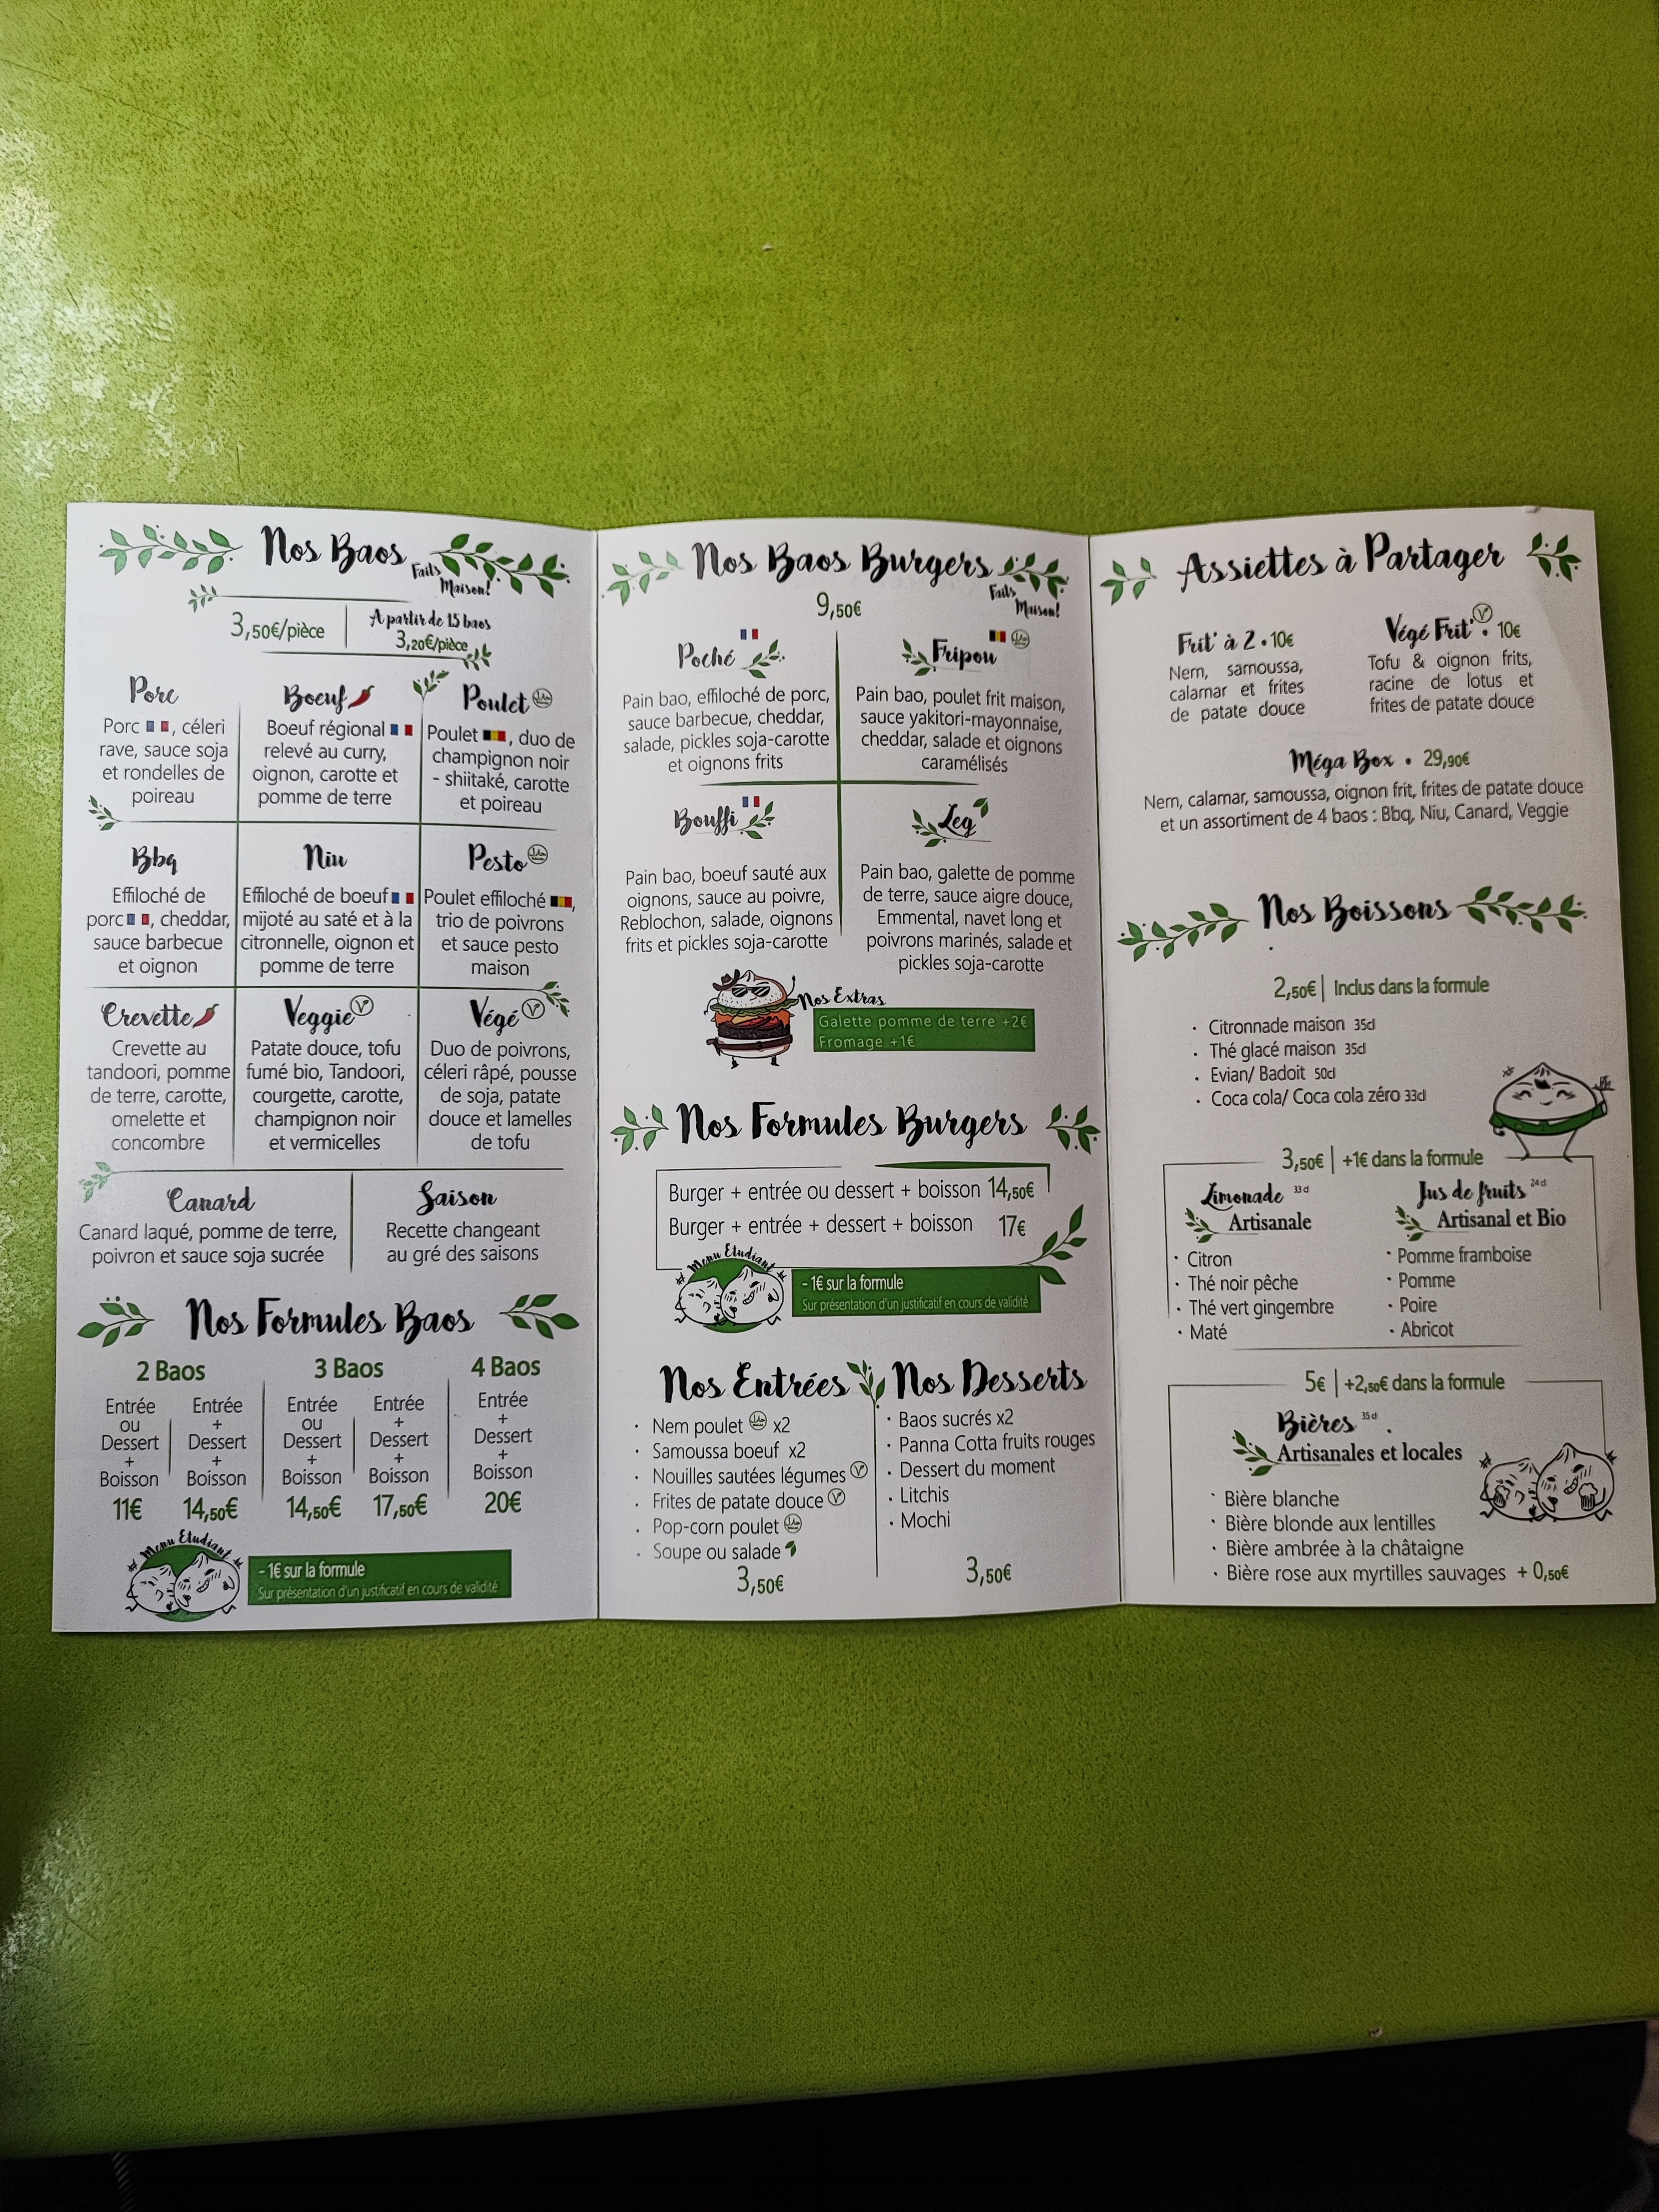 Nos Baos
Faits
Maison!
3,50€/pièce
A partir de 15 baos
3,20€/pièce
Porc
Porc, céleri
rave, sauce soja
et rondelles de
poireau
Boeuf
Boeuf régional
relevé au curry,
oignon, carotte et
pomme de terre
Poulet
Poulet, duo de
champignon noir
- shiitaké, carotte
et poireau
Bbq
Effiloché de
porc, cheddar,
sauce barbecue
et oignon
Niu
Effiloché de boeuf
mijoté au saté et à la
citronnelle, oignon et
pomme de terre
Pesto
Poulet effiloché,
trio de poivrons
et sauce pesto
maison
Crevette
Crevette au
tandoori, pomme
de terre, carotte,
omelette et
concombre
Veggie
Patate douce, tofu
fumé bio, Tandoori,
courgette, carotte,
champignon noir
et vermicelles
Végé
Duo de poivrons,
céleri râpé, pousse
de soja, patate
douce et lamelles
de tofu
Canard
Canard laqué, pomme de terre,
poivron et sauce soja sucrée
Saison
Recette changeant
au gré des saisons
Nos Formules Baos
2 Baos
Entrée
ou
Dessert
+
Boisson
11€
Entrée
+
Dessert
+
Boisson
14,50€
3 Baos
Entrée
ou
Dessert
+
Boisson
14,50€
Entrée
+
Dessert
+
Boisson
17,50€
4 Baos
Entrée
+
Dessert
+
Boisson
20€
Menu Etudiant
- 1€ sur la formule
Sur présentation d'un justificatif en cours de validité
Nos Baos Burgers
Faits
Maison!
9,50€
Poché
Pain bao, effiloché de porc,
sauce barbecue, cheddar,
salade, pickles soja-carotte
et oignons frits
Fripou
Pain bao, poulet frit maison,
sauce yakitori-mayonnaise,
cheddar, salade et oignons
caramélisés
Bouffi
Pain bao, boeuf sauté aux
oignons, sauce au poivre,
Reblochon, salade, oignons
frits et pickles soja-carotte
Leg
Pain bao, galette de pomme
de terre, sauce aigre douce,
Emmental, navet long et
poivrons marinés, salade et
pickles soja-carotte
Nos Extras
Galette pomme de terre +2€
Fromage +1€
Nos Formules Burgers
Burger + entrée ou dessert + boisson 14,50€
Burger + entrée + dessert + boisson 17€
Menu Etudiant
- 1€ sur la formule
Sur présentation d'un justificatif en cours de validité
Nos Entrées
· Nem poulet x2
· Samoussa boeuf x2
· Nouilles sautées légumes V
· Frites de patate douce V
· Pop-corn poulet
· Soupe ou salade
3,50€
Nos Desserts
· Baos sucrés x2
· Panna Cotta fruits rouges
· Dessert du moment
· Litchis
· Mochi
3,50€
Assiettes à Partager
Frit' à 2 • 10€
Nem, samoussa,
calamar et frites
de patate douce
Végé Frit' V • 10€
Tofu & oignon frits,
racine de lotus et
frites de patate douce
Méga Box • 29,90€
Nem, calamar, samoussa, oignon frit, frites de patate douce
et un assortiment de 4 baos : Bbq, Niu, Canard, Veggie
Nos Boissons
2,50€ | Inclus dans la formule
· Citronnade maison 35cl
· Thé glacé maison 35cl
· Evian/ Badoit 50cl
· Coca cola/ Coca cola zéro 33cl
3,50€ | +1€ dans la formule
Limonade 33cl
Artisanale
· Citron
· Thé noir pêche
· Thé vert gingembre
· Maté
Jus de fruits 24cl
Artisanal et Bio
· Pomme framboise
· Pomme
· Poire
· Abricot
5€ | +2,50€ dans la formule
Bières 35cl
Artisanales et locales
· Bière blanche
· Bière blonde aux lentilles
· Bière ambrée à la châtaigne
· Bière rose aux myrtilles sauvages + 0,50€